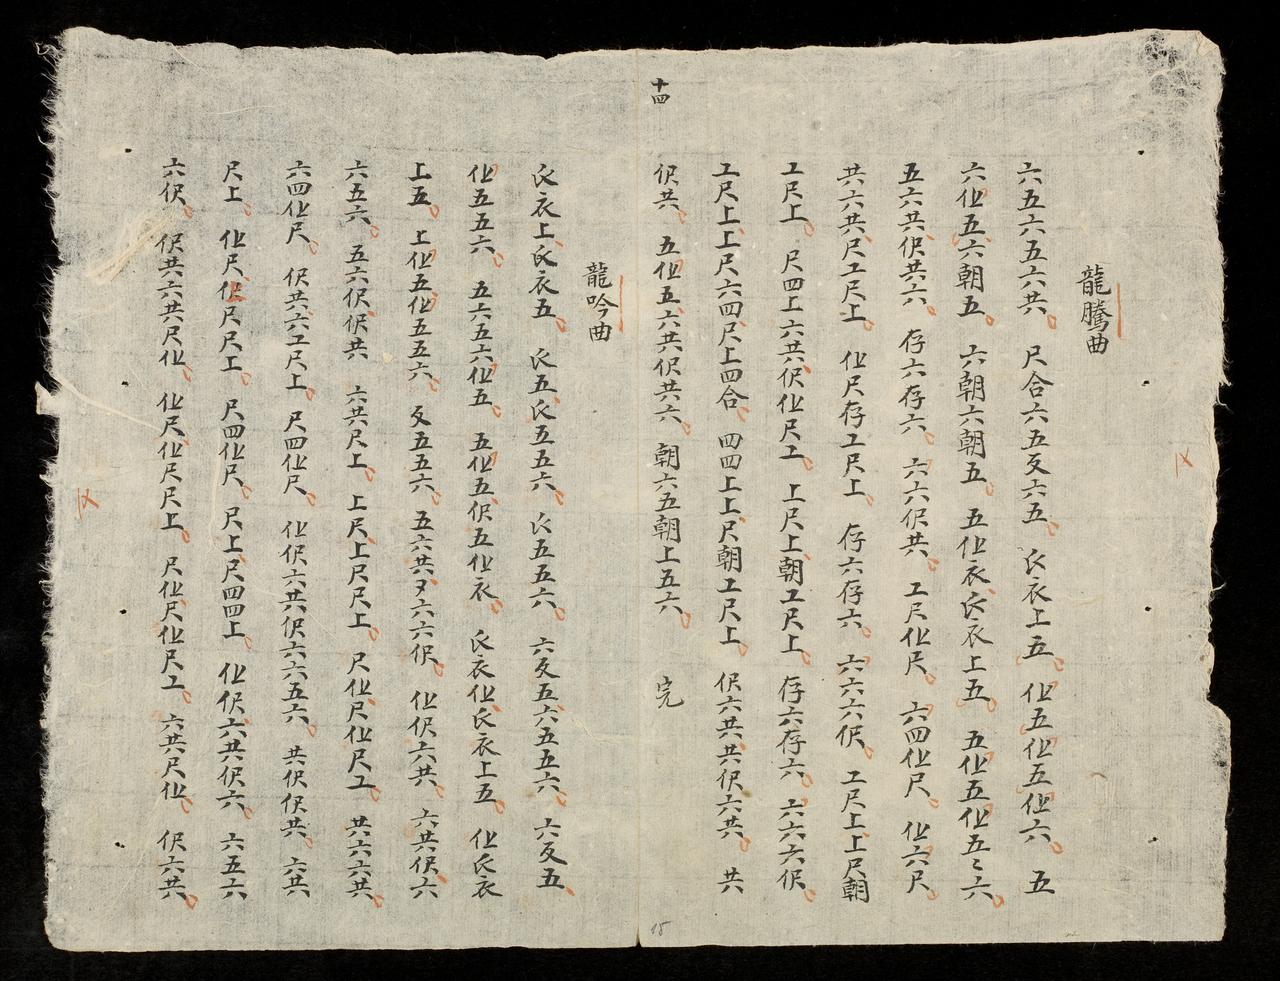 龍騰曲
六五六五六共 尺合六五反六五 氏衣上五 仩五仩五仩六 五
六仩五六朝五 六朝六朝五 五仩衣氏衣上五 五仩五仩五〻六
五六共伬共六 存六存六 六六伬共 工尺仩尺 六四仩尺 仩六尺
共六共尺工尺上 仩尺存工尺上 存六存六 六六六伬 工尺上上尺朝
工尺上 尺四上六共伬仩尺工 上尺上朝工尺上 存六存六 六六六伬
工尺上上尺六四尺上四合 四四上上尺朝工尺上 伬六共共伬六共 共
十四
伬共 五仩五六共伬共六 朝六五朝上五六 完
龍吟曲
氏衣上氏衣五 氏五氏五五六 氏五五六 六反五六五五六 六反五
仩五五六 五六五六仩五 五仩五伬五仩衣 氏衣仩氏衣上五 仩氏衣
上五 上仩五仩五五六 反五五六 五六共又六六伬 仩伬六共 六共伬六
六五六 五六伬伬共 六共尺上 上尺上尺尺上 尺仩尺仩尺工 共六六共
六四仩尺 伬共六工尺上 尺四仩尺 仩伬六共伬六六五六 共伬伬共 六共
尺上 仩尺伬尺尺工 尺四仩尺 尺上尺四四上 仩伬六共伬六 六五六
六伬 伬共六共尺仩 仩尺仩尺尺上 尺仩尺仩尺工 六共尺仩 伬六共
15